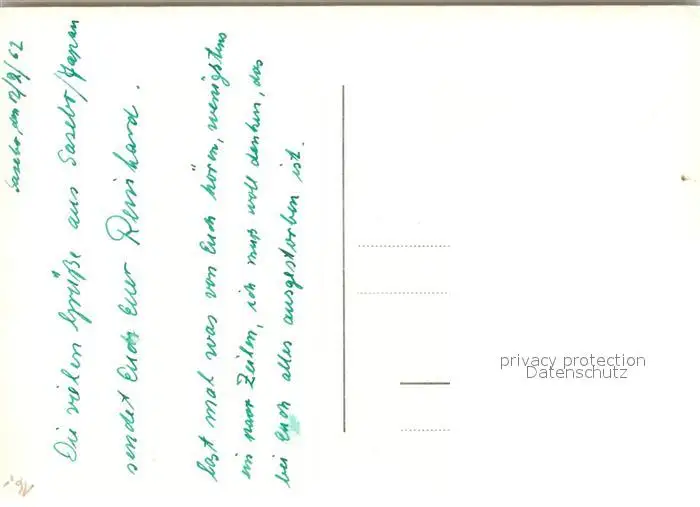 Sasebo, den 2/9/62
Die vielen Grüße aus Sasebo/Japan
sendet Euch Euer Reinhard.
Last mal was von Euch hören, wenigstens
ein paar Zeilen, ich muß woll denken, das
bei Euch alles ausgestorben ist.
privacy protection
Datenschutz